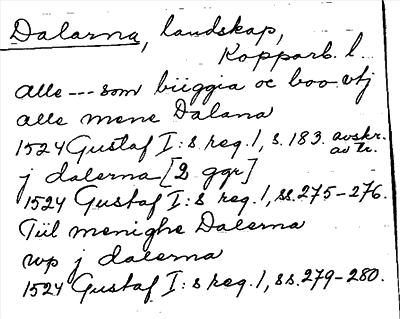 Dalarna, landskap,
Kopparb. l.
alle --- som biiggia oc boo vtj
alle mene Dalana
1524 Gustaf I:s reg. 1, s. 183. avskr. av tr.
j dalerna [2 ggr]
1524 Gustaf I:s reg. 1, ss. 275-276.
Tiil menighe Dalerna
wp j dalerna
1524 Gustaf I:s reg. 1, ss. 279-280.